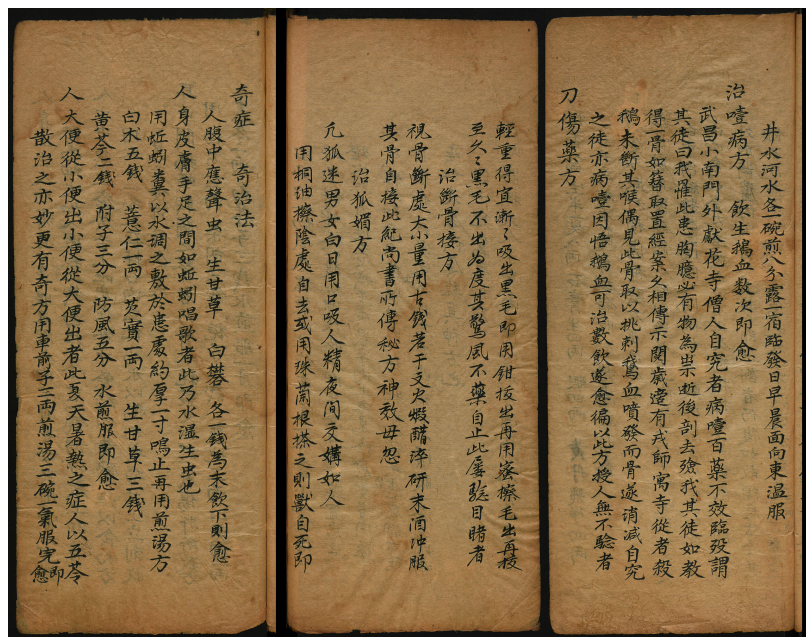 井水河水各一碗煎八分露一宿臨發日早晨面向東溫服
治噎病方　飲生鵝血数次即愈
武昌小南門外獻花寺僧人自究者病噎百藥不效臨歿謂
其徒曰我罹此患胸臆必有物為祟逝後剖去殮我其徒如教
得一骨如簪取置經案久相傳示閱歲適有戎師寓寺從者殺
鵝未斷其喉偶見此骨取以挑刺鵝血噴發而骨遂消滅自究
之徒亦病噎因悟鵝血可治數飲遂愈徧以此方授人無不驗者
刀傷藥方
輕重得宜漸々吸出黑毛即用鉗拔出再用蜜擦毛出再揉
至久々黑毛不出為度其驚風不藥自止此屢驗目睹者
治斷骨接方
視骨斷處大小量用古錢若干文火煅醋淬研末酒冲服
其骨自接此紀尚書所傳秘方神效毋忽
治狐媚方
凢狐迷男女白日用口吸人精夜間交媾如人
用桐油擦陰處自去或用珠蘭根搽之則獸自死即
奇症　奇治法
人腹中應聲虫　生甘草　白礬　各一錢為末飲下則愈
人身皮膚手足之間如蚯蚓唱歌者此乃水溫生虫也
用蚯蚓糞以水调之敷於患處約厚一寸鳴止再用煎湯方
白术五錢　薏仁一兩　芡實一兩　生甘草三錢
黄芩二錢　附子三分　防風五分　水煎服即愈
人大便從小便出小便從大便出者此夏天暑熱之症人以五苓
散治之亦妙更有奇方用車前子三兩煎湯三碗一氣服完即愈